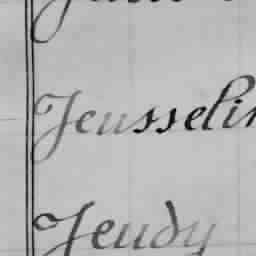 Jeusselin
Jeudy